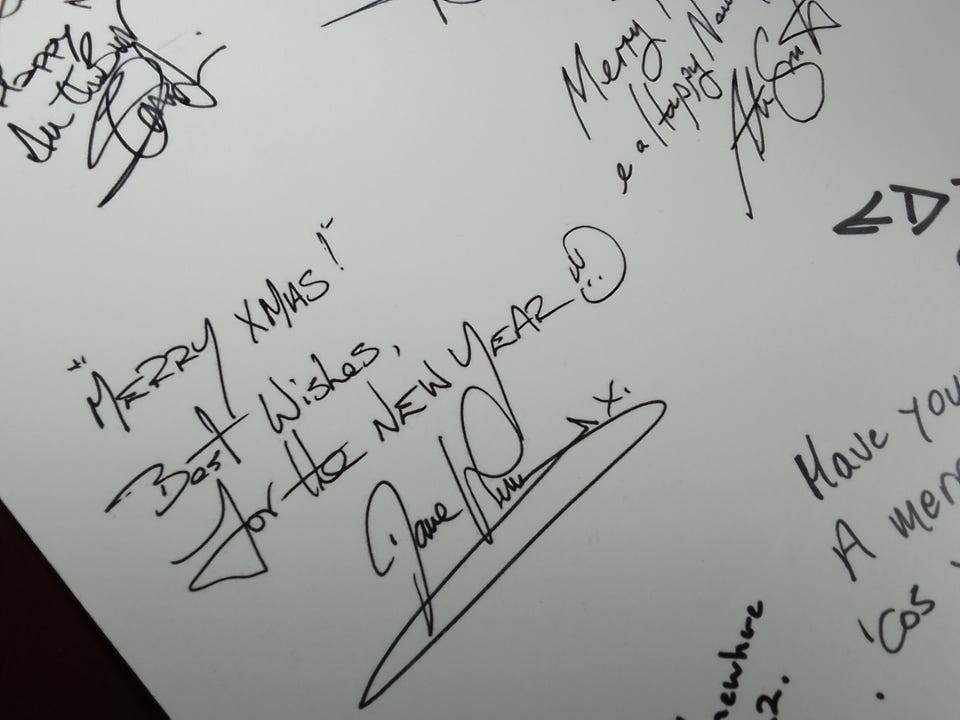 Happy
Merry
e a Happy New
"MERRY XMAS!"
Best Wishes,
for the NEW YEAR
Dave
x.
Have you
A merr
'Cos
newhere
2.